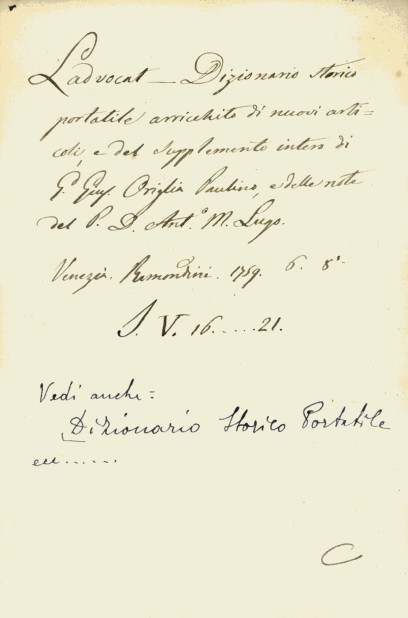 Ladvocat — Dizionario storico
portatile arricchito di nuovi arti=
coli, e del supplemento intero di
G.ⁿ Gius. Origlia Paulino, e delle note
del P. D. Ant.º M. Lugo.
Venezia. Remondini. 1759. 6. 8º.
S. V. 16.....21.
Vedi anche=
Dizionario Storico Portatile
ecc......
C